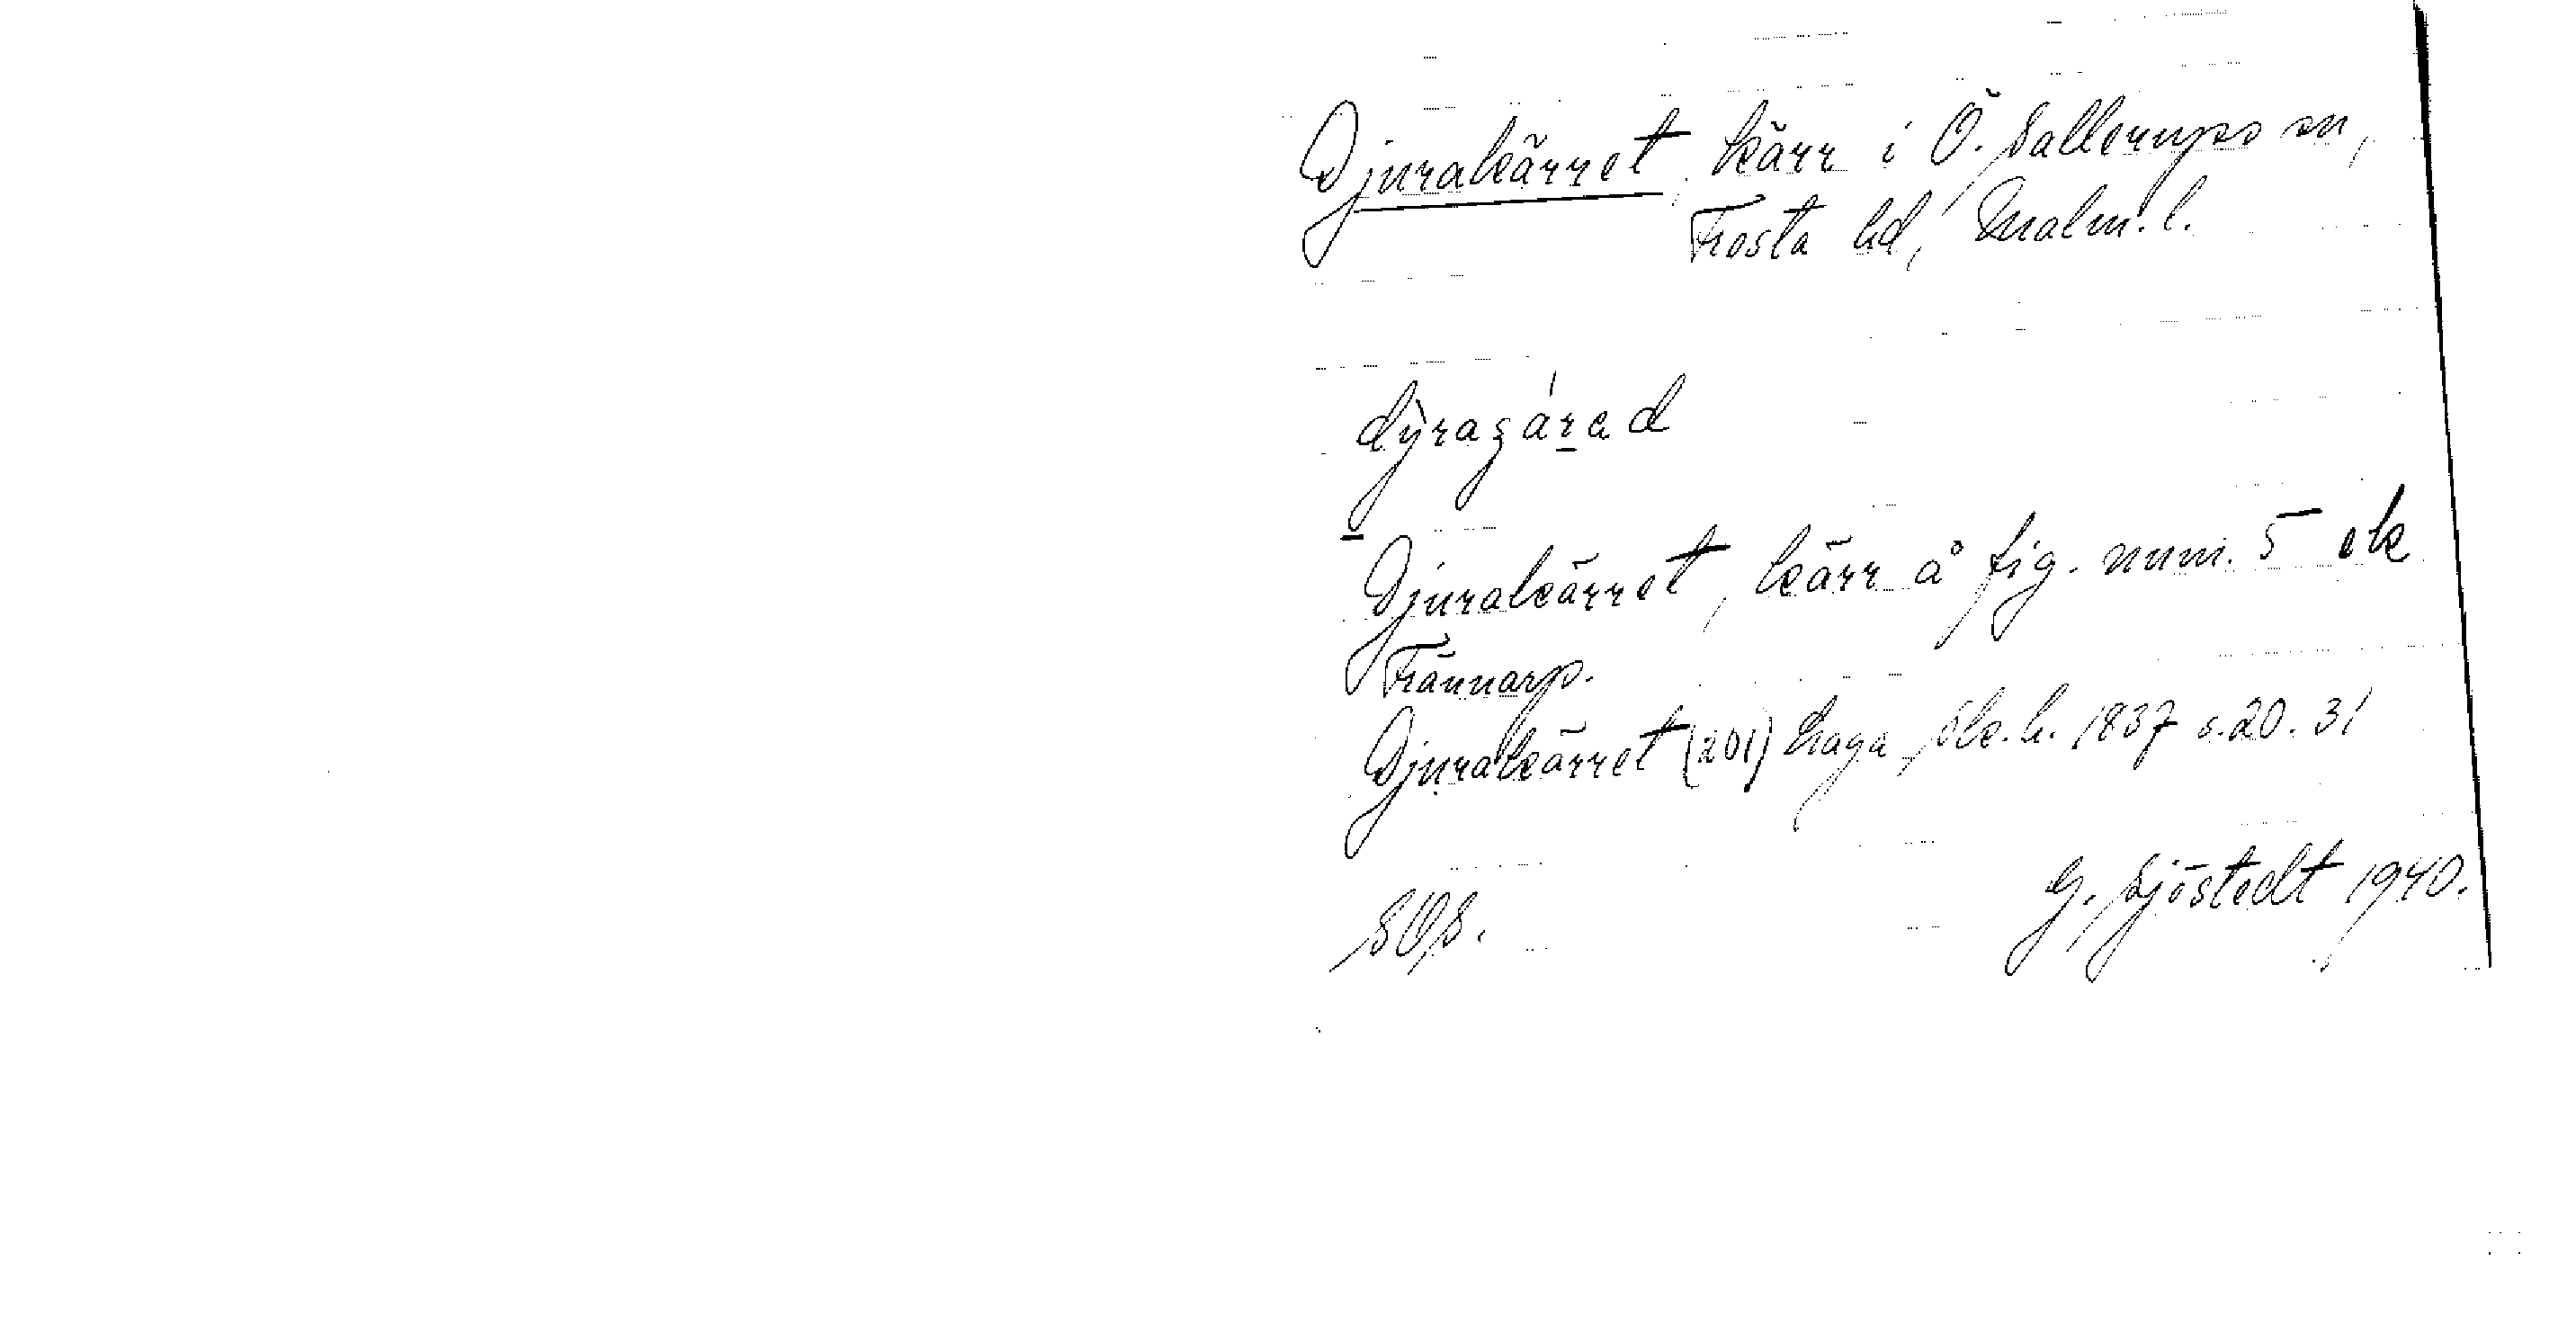 Djurakärret, kärr i Ö. Sallerups sn,
Frosta hd, Malm. l.
Djurakärret, kärr å fig. num. 5 ek
Frännarp.
Djurakärret (201) haga, Sk.h. 1837 s.20. 31
SOS.
G. Sjöstedt 1940.